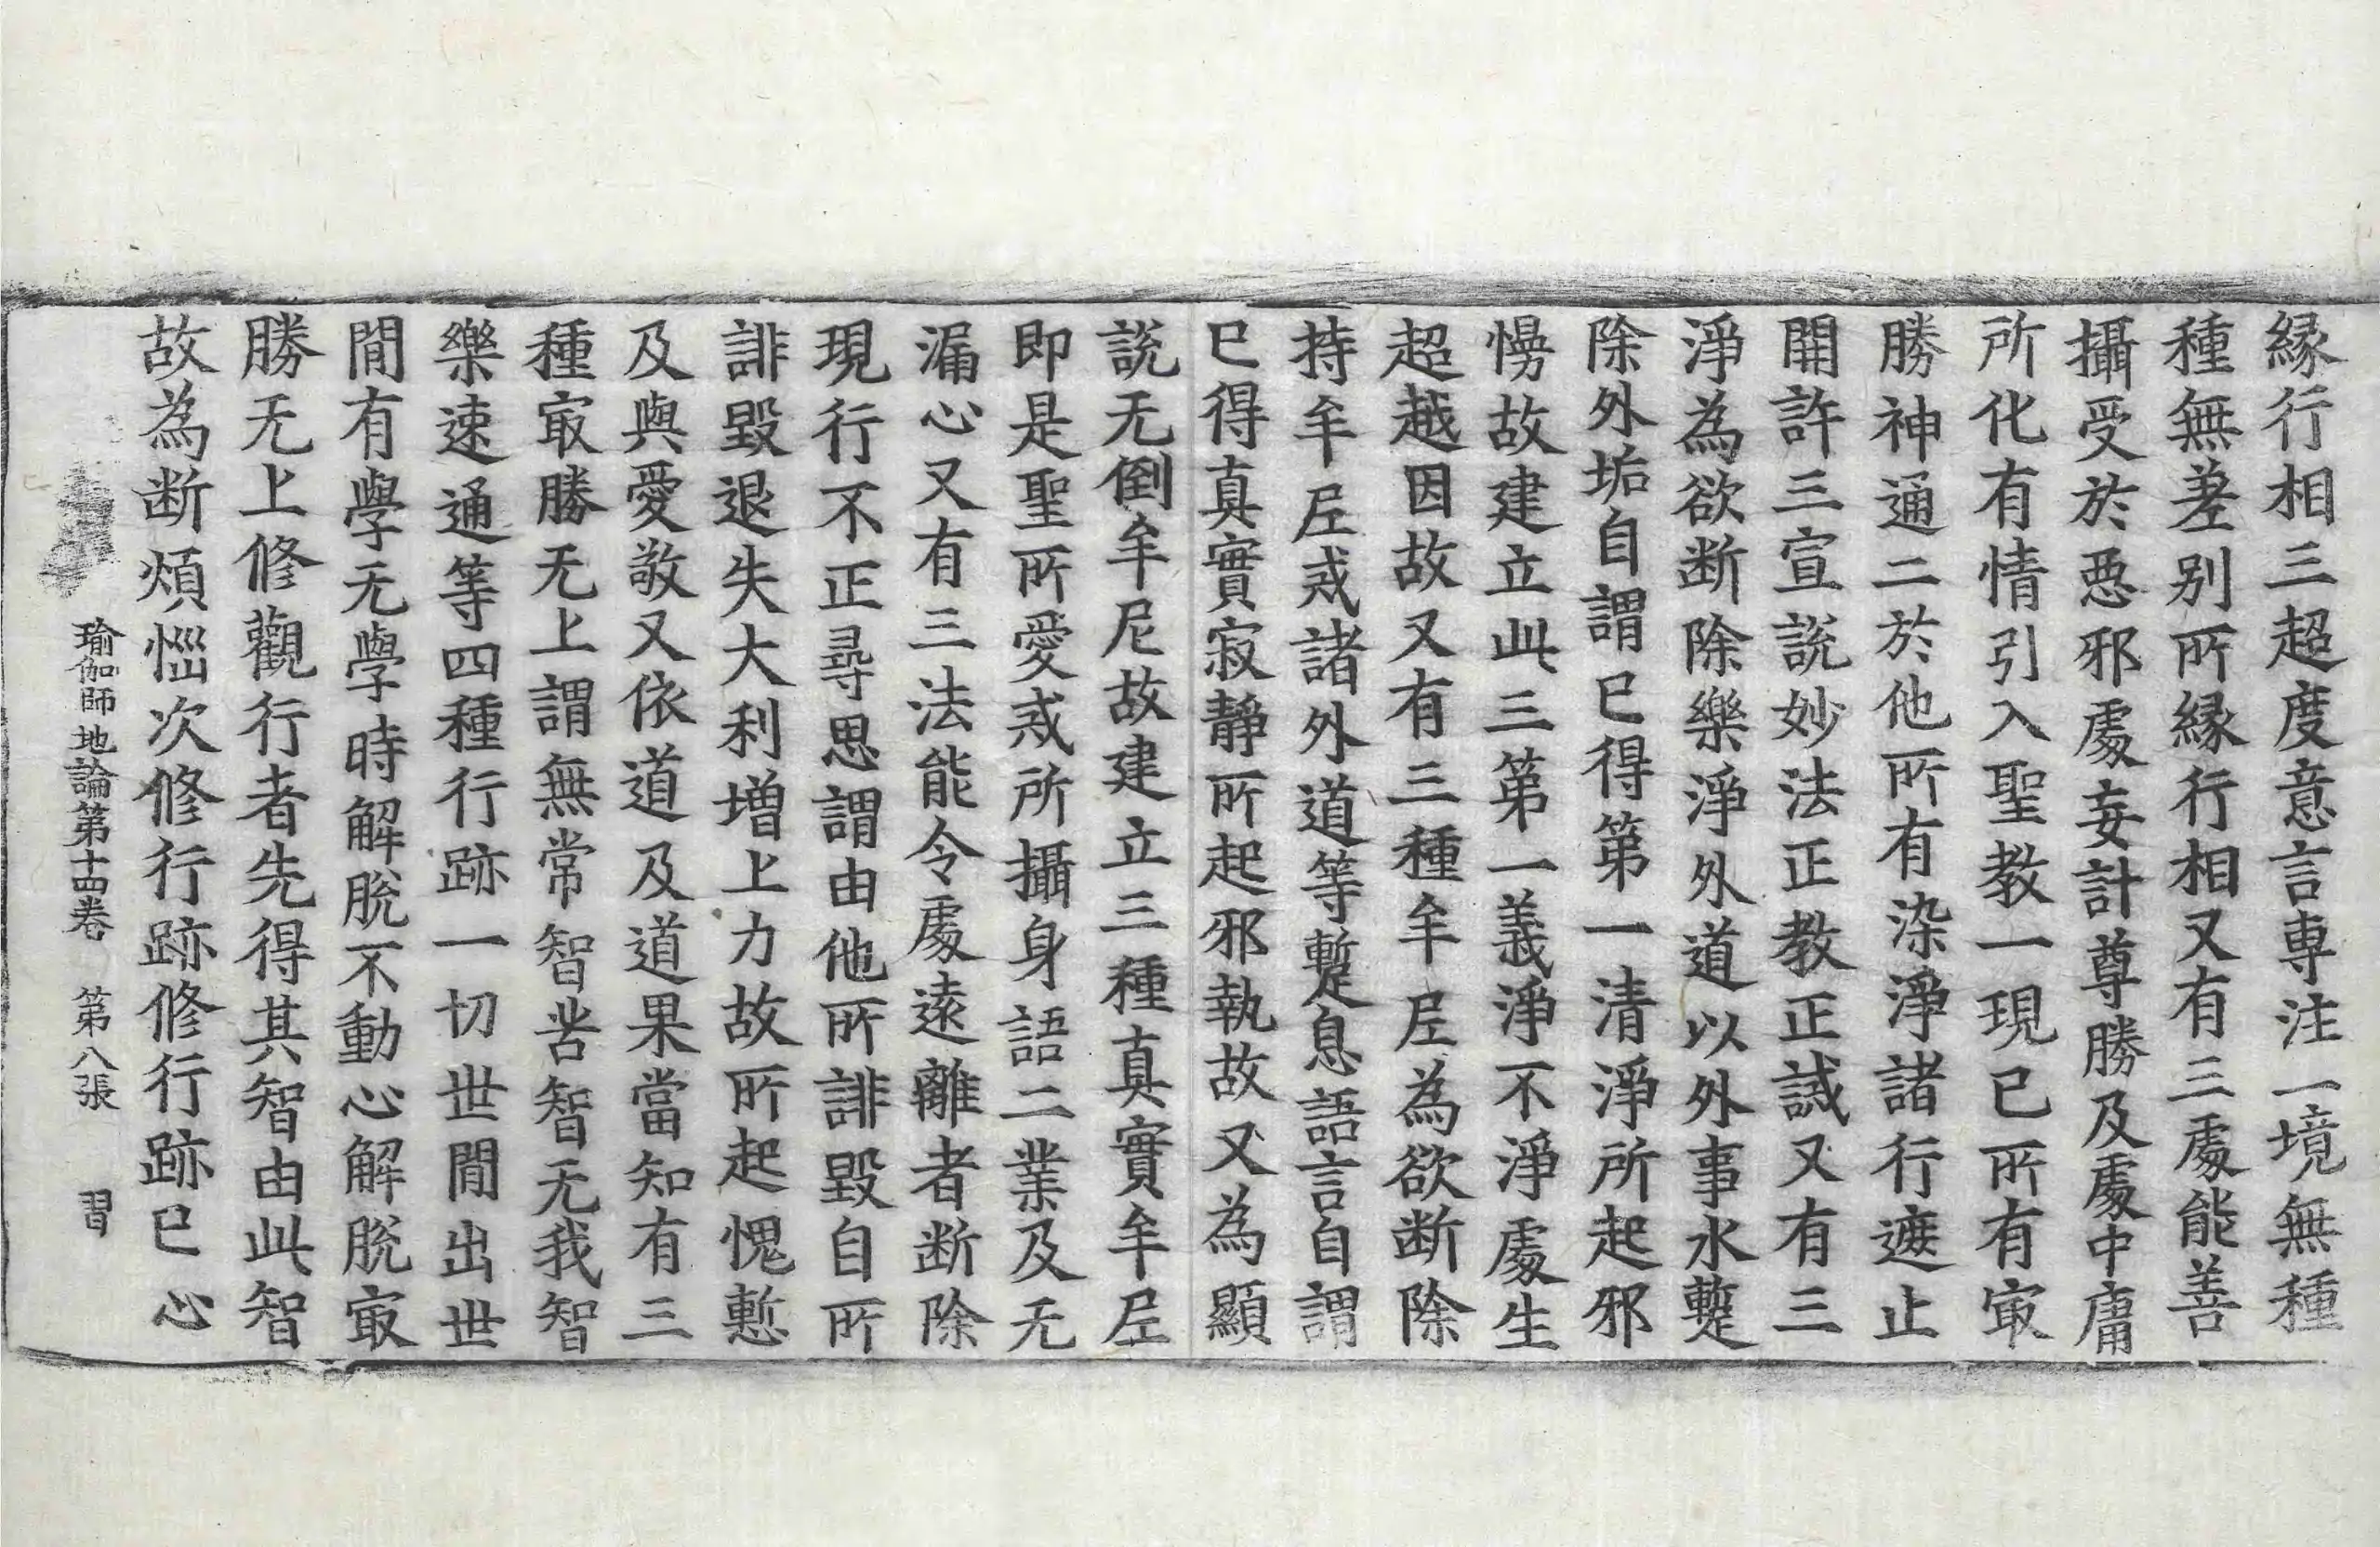 縁行相三超度意言専注一境無種
種無差别所縁行相又有三處能善
攝受於惡邪處妄計尊勝及處中庸
所化有情引入聖教一現已所有㝡
勝神通二於他所有染淨諸行遮止
開許三宣説妙法正教正誡又有三
淨為欲断除樂淨外道以外事水蹔
除外垢自謂已得第一清淨所起邪
慢故建立此三第一義淨不淨處生
超越因故又有三種牟尼為欲断除
持牟尼戒諸外道等蹔息語言自謂
已得真實寂靜所起邪執故又為顯
説无倒牟尼故建立三種真實牟尼
即是聖所愛戒所攝身語二業及无
漏心又有三法能令處遠離者断除
現行不正尋思謂由他所誹毀自所
誹毀退失大利增上力故所起愧慙
及與愛敬又依道及道果當知有三
種㝡勝无上謂無常智苦智无我智
樂速通等四種行跡一切世間出世
間有學无學時解脱不動心解脱㝡
勝无上修觀行者先得其智由此智
故為断煩惱次修行跡修行跡已心
瑜伽師地論第十四卷 第八張 習